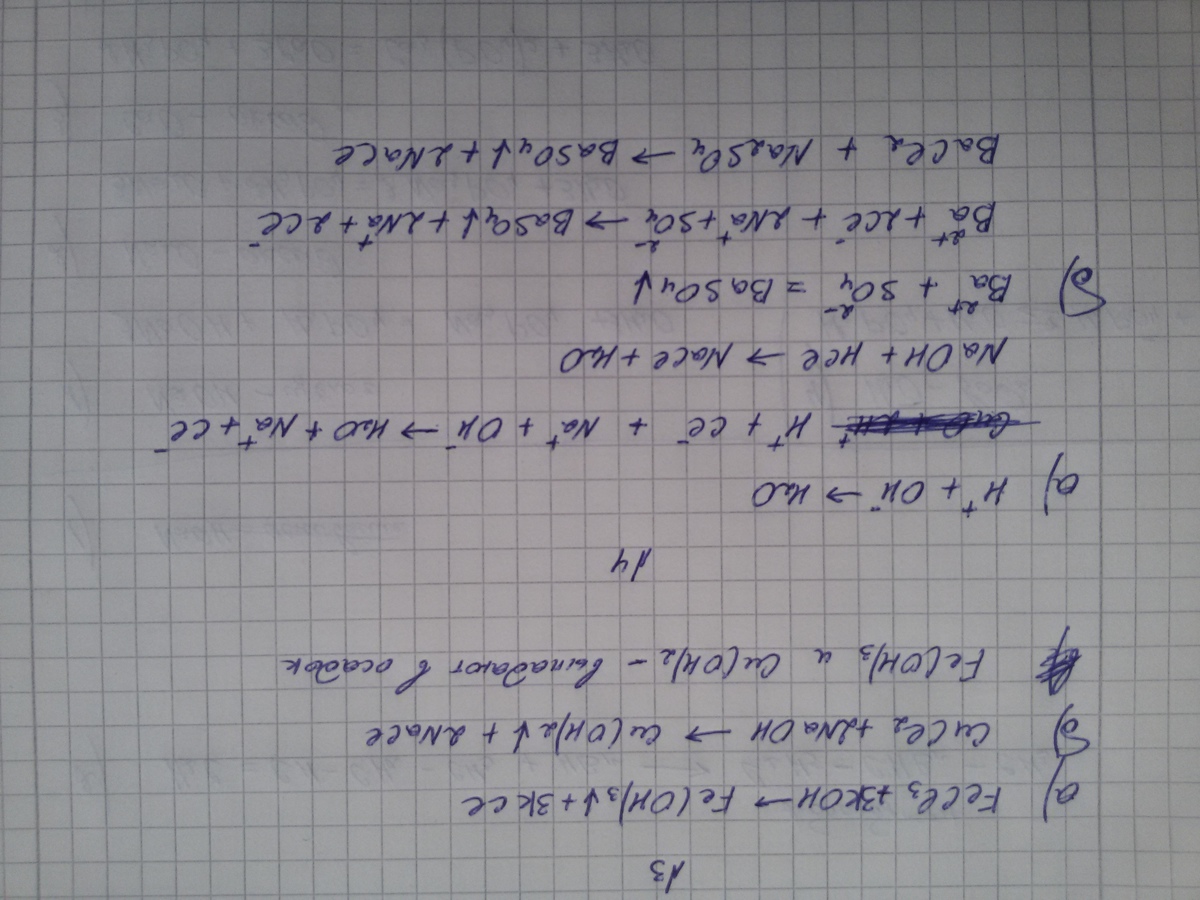 №3
а) FeCl₃ + 3KOH → Fe(OH)₃↓ + 3KCl
б) CuCl₂ + 2NaOH → Cu(OH)₂↓ + 2NaCl
Fe(OH)₃ и Cu(OH)₂ - выпадают в осадок
№4
а) H⁺ + OH⁻ → H₂O
H⁺ + Cl⁻ + Na⁺ + OH⁻ → H₂O + Na⁺ + Cl⁻
NaOH + HCl → NaCl + H₂O
б) Ba²⁺ + SO₄²⁻ = BaSO₄↓
Ba²⁺ + 2Cl⁻ + 2Na⁺ + SO₄²⁻ → BaSO₄↓ + 2Na⁺ + 2Cl⁻
BaCl₂ + Na₂SO₄ → BaSO₄↓ + 2NaCl